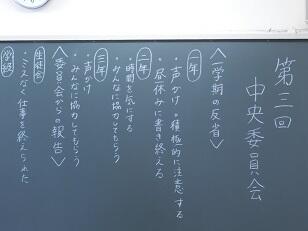 第三回
中央委員会
〈一学期の反省〉
一年
・声かけ。積極的に注意する
・昼休みに書き終える
二年
・時間を気にする
・みんなに協力してもらう
三年
・声かけ
・みんなに協力してもらう
〈委員会からの報告〉
生徒会
学級
・さえなく仕事を終えられた